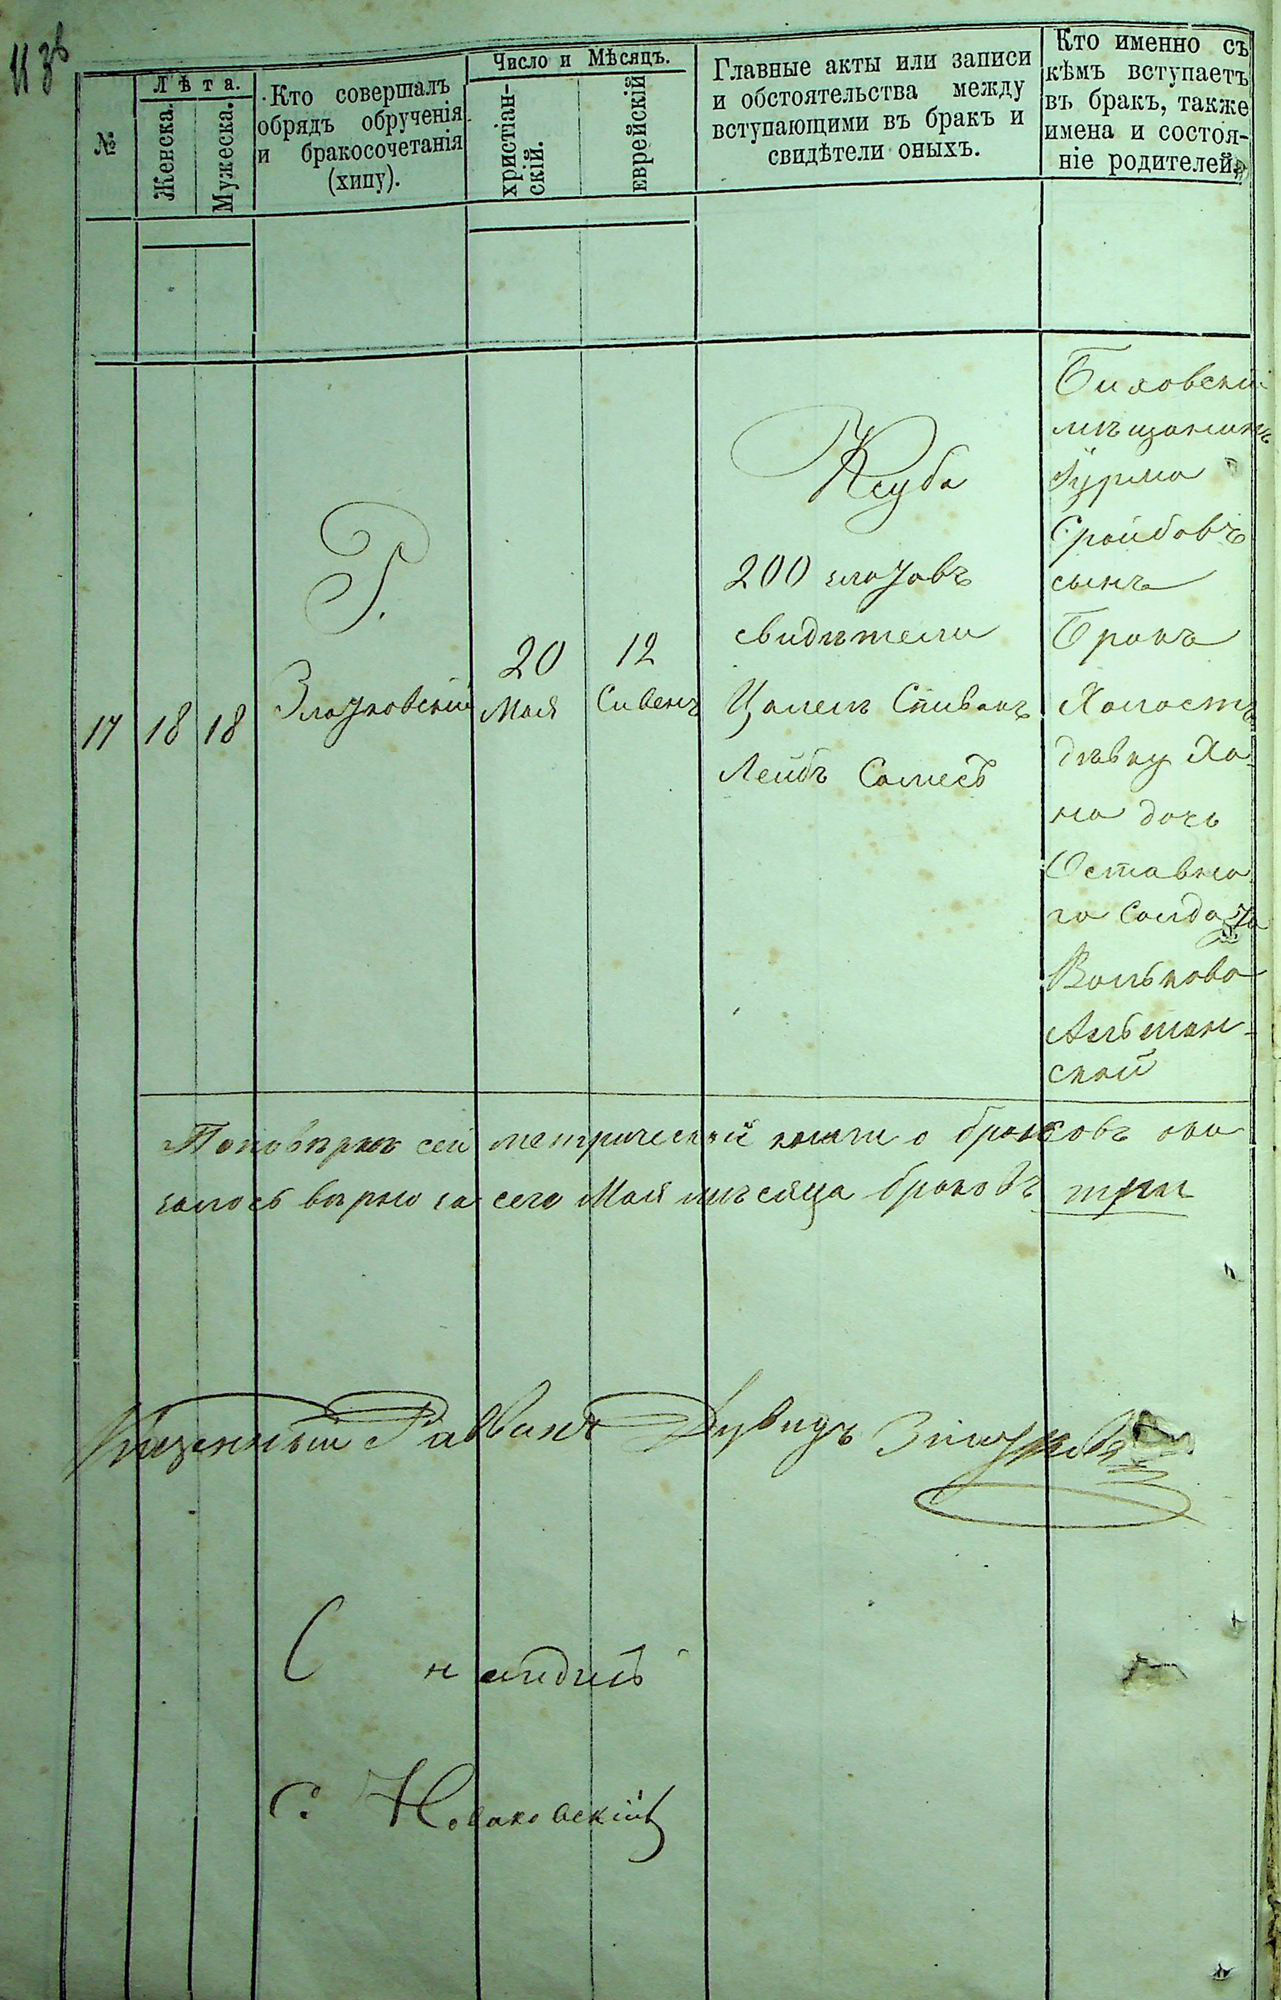 113 об
№
Лѣта.
Женска.
Мужеска.
Кто совершалъ
обрядъ обрученія
и бракосочетанія
(хипу).
Число и Мѣсяцъ.
христіан-
скій.
еврейскій
Главные акты или записи
и обстоятельства между
вступающими въ бракъ и
свидѣтели оныхъ.
Кто именно съ
кѣмъ вступаетъ
въ бракъ, также
имена и состоя-
ніе родителей.
17
18
18
Р.
Злотковскій
20
Мая
12
Сивенъ
Ксуба
200 злотовъ
свидѣтели
Цалель Спивакъ
Лейбъ
мѣщанинъ
сынъ
Холостъ
дѣвку Ха-
на дочь
Оставна-
го Солдата
Волькова
Альтман-
ской
По повѣрке сей метрической книги о браковъ ока
залось вѣрно за сего Мая мѣсяца браковъ три
Казенный Раввинъ Дувидъ Злотковскій
С. Новаковскій